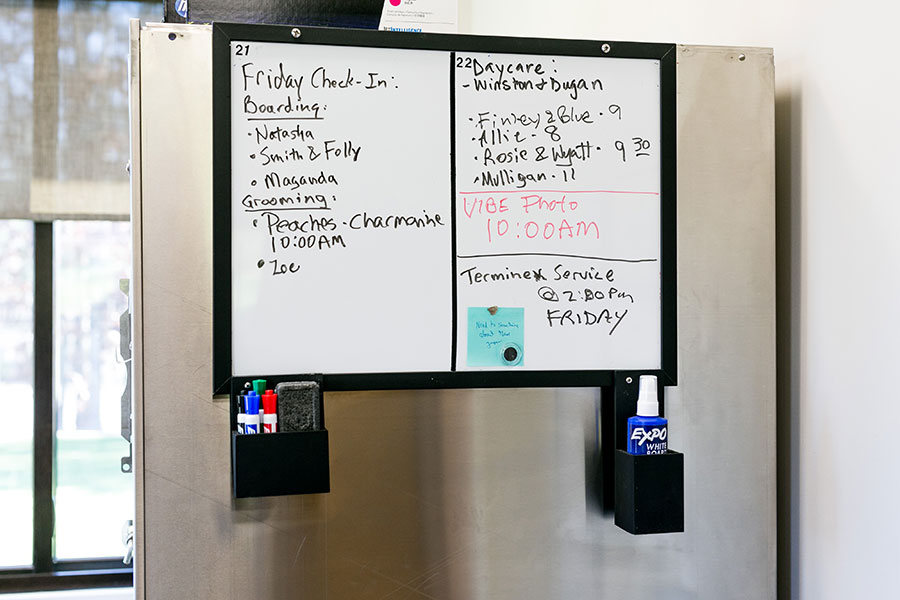 21
Friday Check-In:
Boarding:
· Natasha
· Smith & Folly
· Maganda
Grooming:
· Peaches - Charmanine
10:00AM
· Zoe
22
Daycare:
- Winston & Dugan
· Finley & Blue · 9
· Allie - 8
· Rosie & Wyatt · 9 30
· Mulligan · 11
VIBE Photo
10:00AM
Terminex Service
@ 2:00 Pm
FRIDAY
Need to something
about these
EXPO
WHITE
BOARD